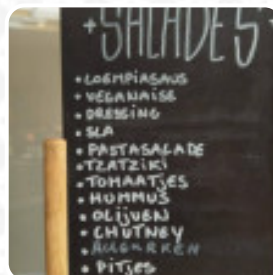 +SALADES
• LOEMPIASAUS
• VEGANAISE
• DRESSING
• SLA
• PASTASALADE
• TZATZIKI
• TOMAATJES
• HUMMUS
• OLIJVEN
• CHUTNEY
• AUGURKEN
• PITJES